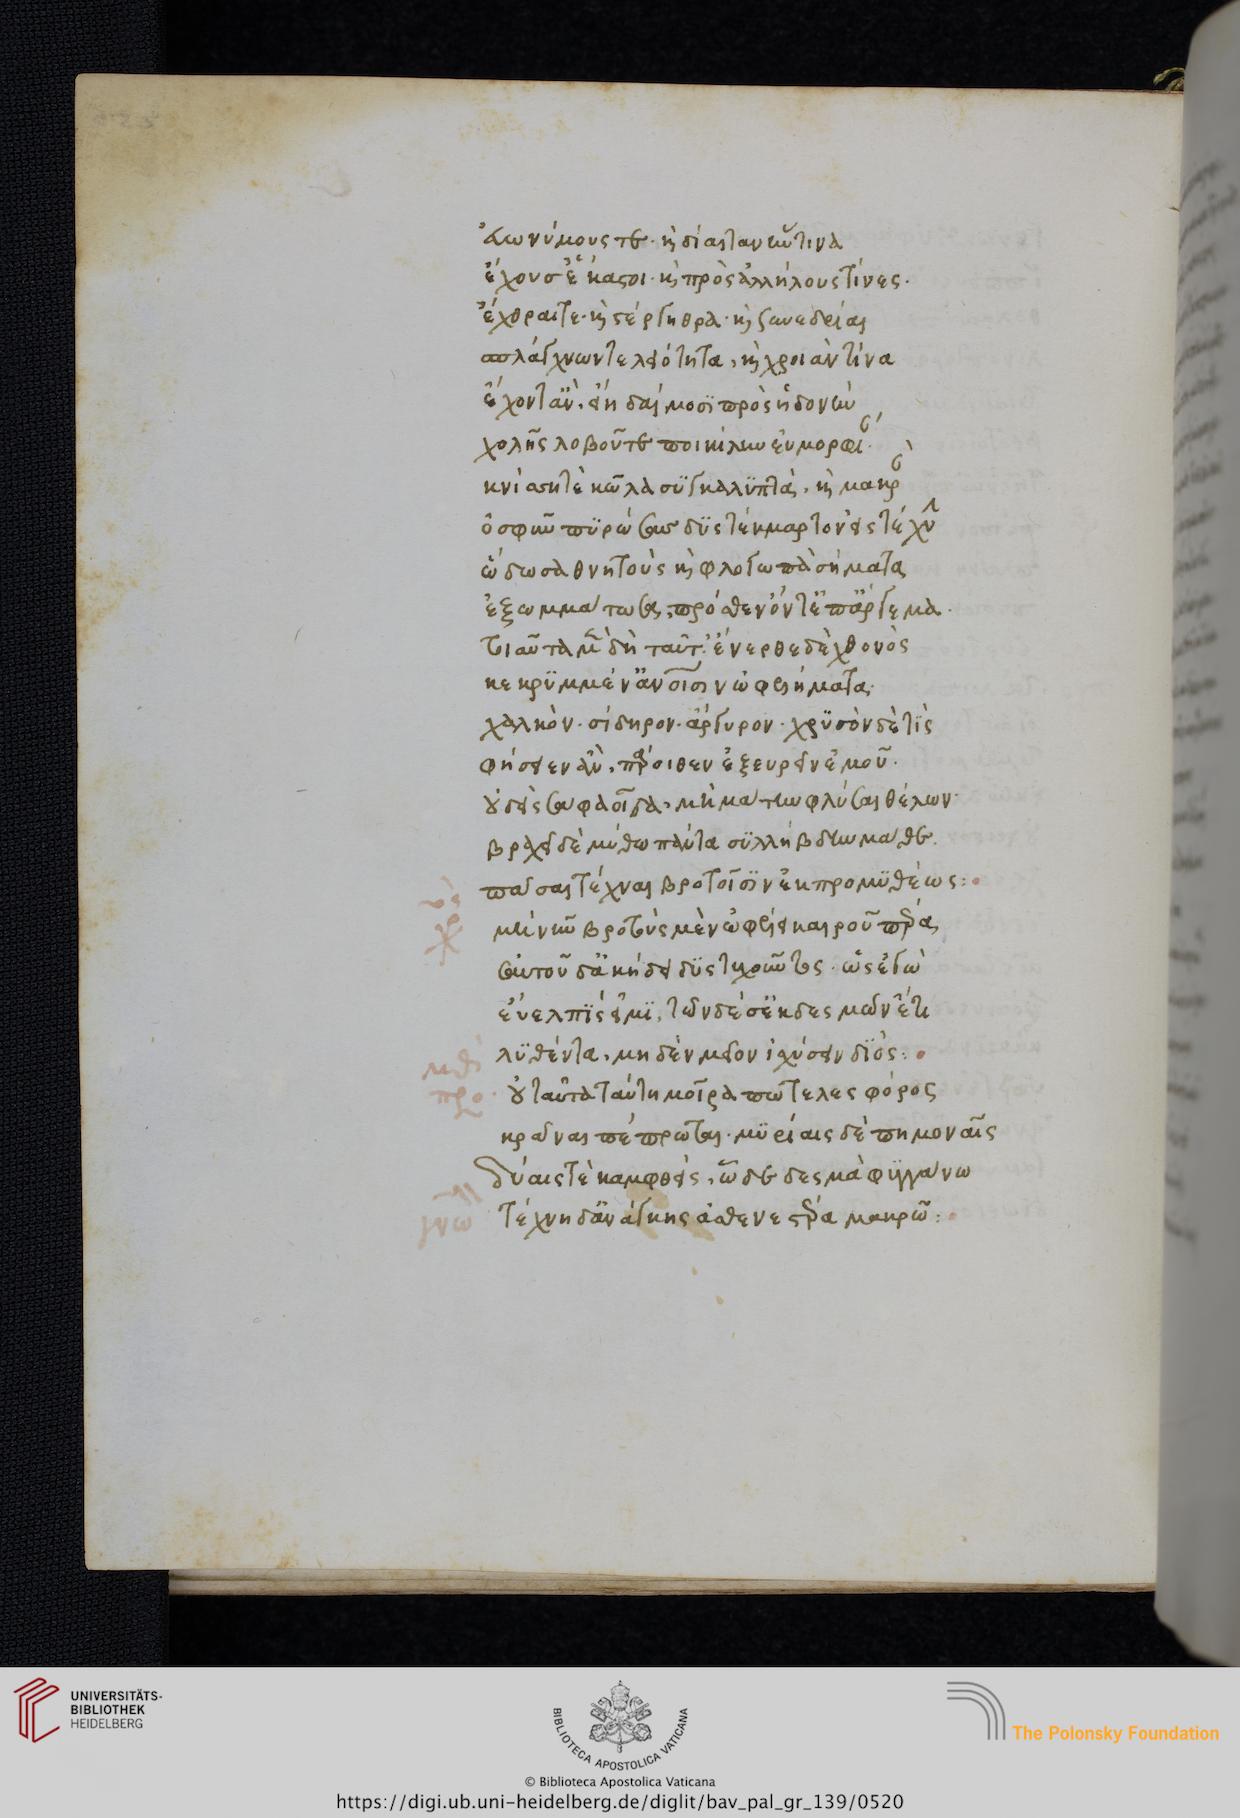 εὐωνύμους τε· καὶ δίαιταν ἥντινα
ἔχουσ' ἕκαστοι· καὶ πρὸς ἀλλήλους τίνες·
ἔχθραι τε· καὶ στέργηθρα· καὶ ξυνεδρίαι
σπλάγχνων τε λειότητα, καὶ χροιὰν τίνα
ἔχοντ' ἂν, εἴη δαίμοσι πρὸς ἡδονὴν
χολῆς λοβοῦ τε ποικίλην εὐμορφί
κνίσῃ τὲ κῶλα συγκαλυπτὰ, καὶ μακρ
ὀσφῦν πυρώσας δυστέκμαρτον εἰς τέχν
ὥδωσα θνητοὺς καὶ φλογωπὰ σήματα
ἐξωμμάτωσα, πρόσθεν ὄντ' ἐπάργεμα·
τοιαῦτα μὲν δὴ ταῦτ'· ἔνερθε δὲ χθονὸς
κεκρυμμέν' ἀνοισιν ὠφελήματα·
χαλκὸν· σίδηρον· ἄργυρον· χρυσὸν δὲ τὶς
φήσειεν ἂν, πάροιθεν ἐξευρεῖν ἐμοῦ·
οὐδεὶς σάφα οἶδα, μὴ μάτην φλύσαι θέλων·
βραχεῖ δὲ μύθω πάντα συλλήβδην μάθε·
πᾶσαι τέχναι βροτοῖσιν ἐκ προμηθέως:
χο
μή νυν βροτοὺς μὲν ὠφέλει καιροῦ πέρα,
σαυτοῦ δ' ἀκήδει δυστυχοῦντος· ὡς ἐγὼ
εὔελπίς εἰμι, τῶνδέ σ' ἐκ δεσμῶν ἔτι
λυθέντα, μηδὲν μεῖον ἰσχύσειν διός:
προ
οὐ ταῦτα ταύτη μοῖρά πω τελεσφόρος
κρᾶναι πέπρωται· μυρίαις δὲ πημοναῖς
δύαις τὲ καμφθεὶς, ὧδε δεσμὰ φυγγάνω
γνω
τέχνη δ' ἀνάγκης ἀσθενεστέρα μακρῶ:
UNIVERSITÄTS-
BIBLIOTHEK
HEIDELBERG
BIBLIOTECA APOSTOLICA VATICANA
The Polonsky Foundation
© Biblioteca Apostolica Vaticana
https://digi.ub.uni-heidelberg.de/diglit/bav_pal_gr_139/0520